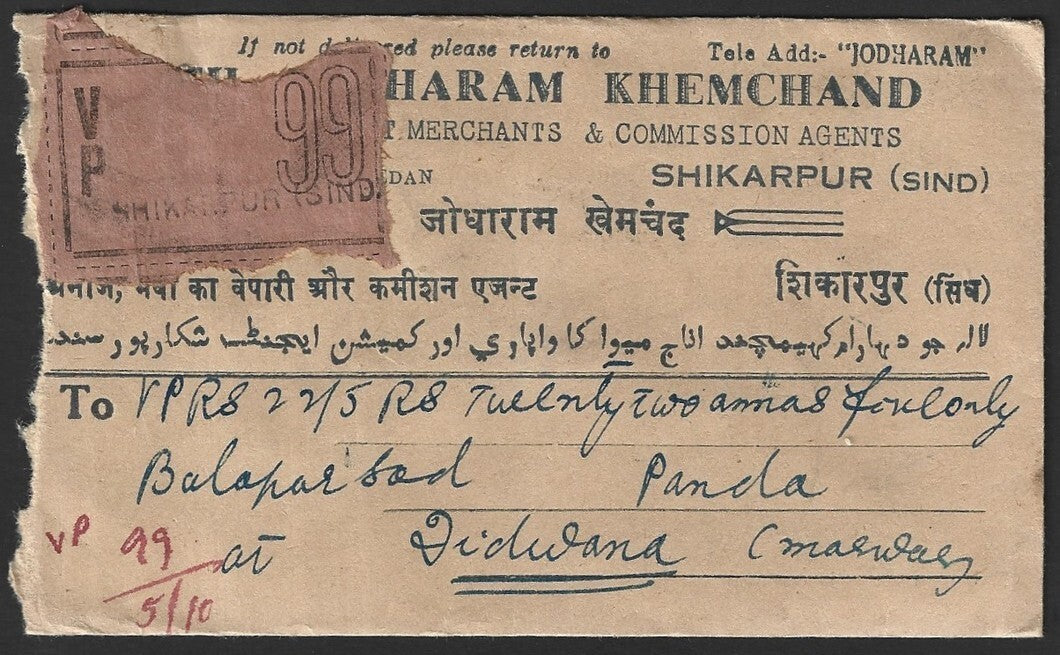 If not delivered please return to Tele Add:- "JODHARAM"
HARAM KHEMCHAND
T MERCHANTS & COMMISSION AGENTS
DAN SHIKARPUR (SIND)
V P 99
SHIKARPUR (SIND)
जोधाराम खेमचंद
का वेपारी और कमीशन एजन्ट शिकारपुर (सिंध)
اناج ميوا کا واپاري اور کميشن ايجنٽ شکارپور سنده
To VP RS 22/5 RS Twenty two annas five only
Balaparsad Panda
VP 99 at Didwana (Marwar)
5/10